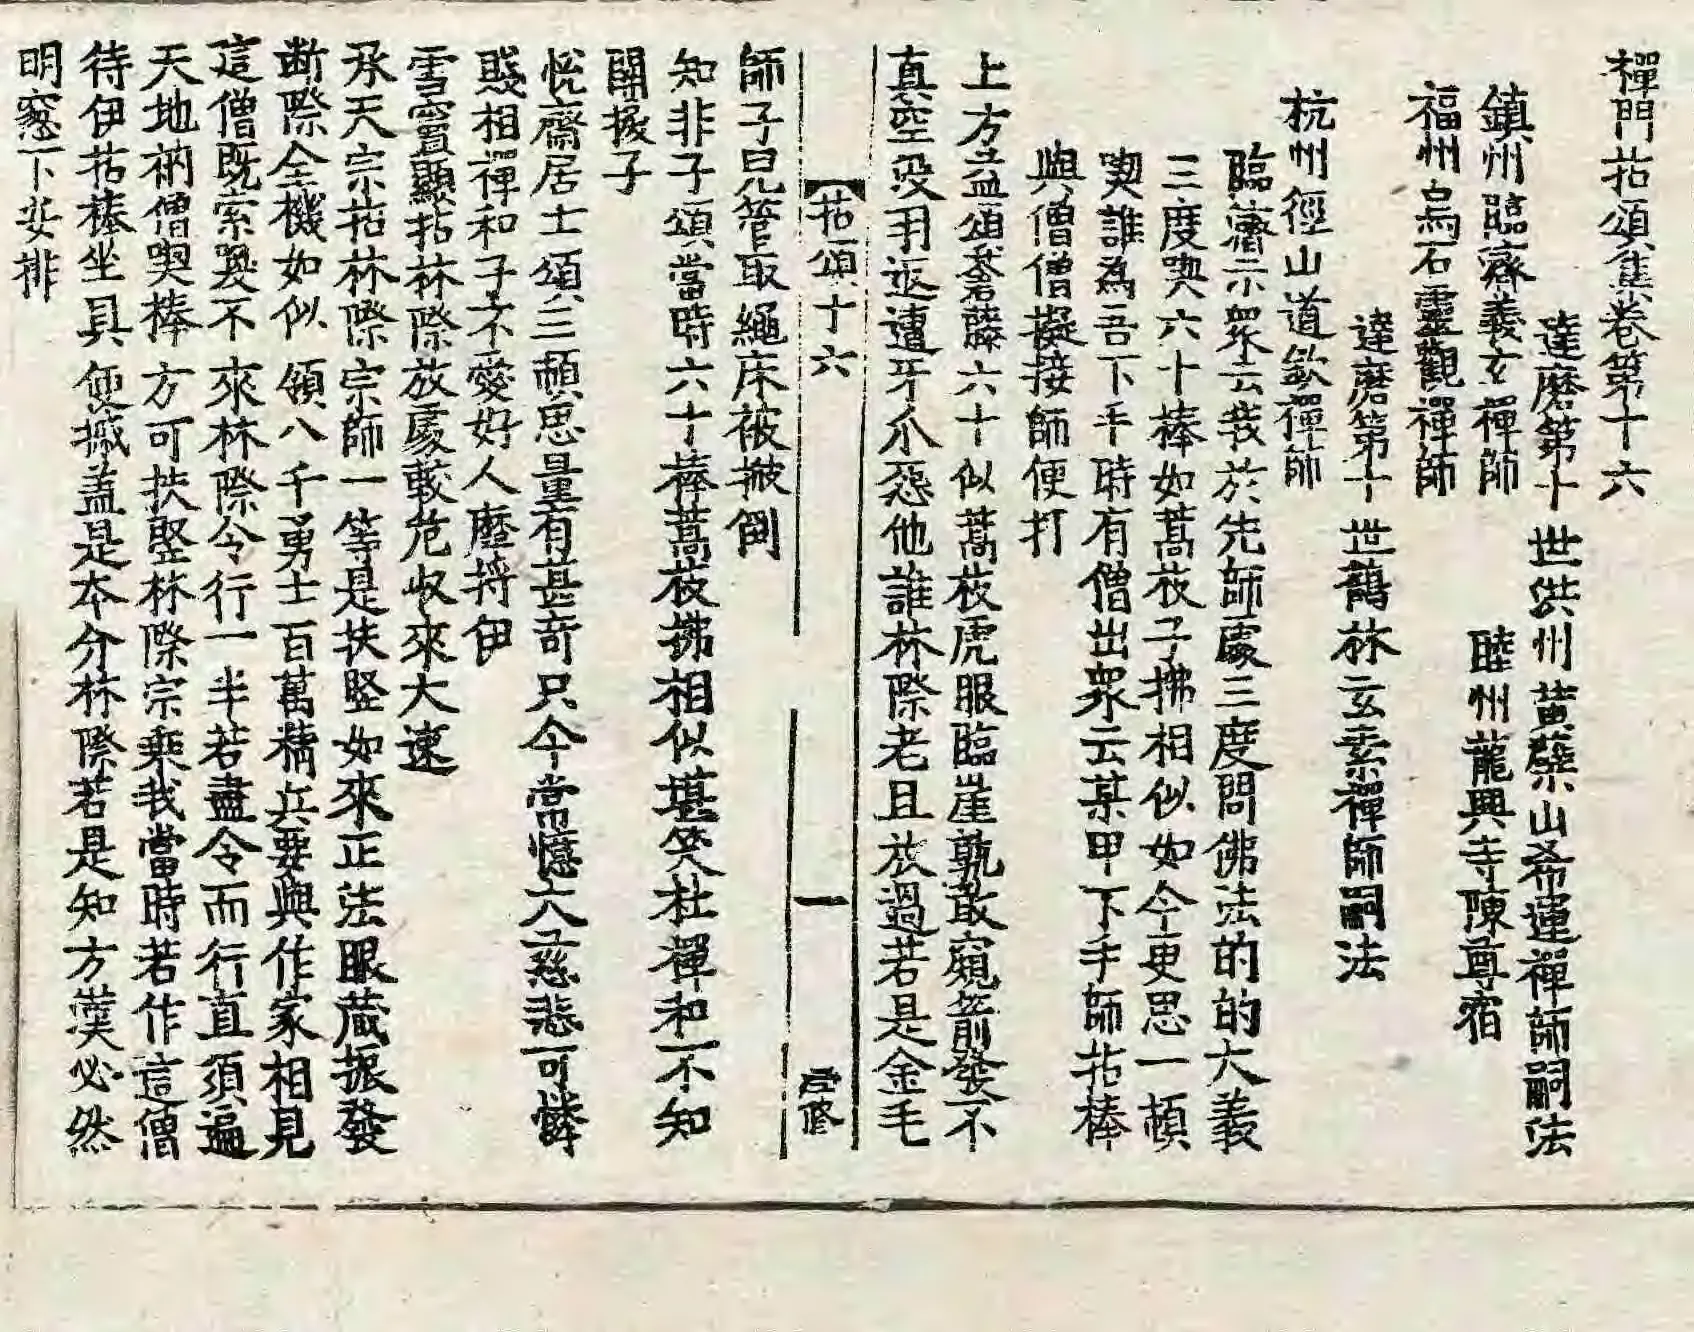 禪門拈頌集卷第十六
達磨第十世洪州黃蘗山希運禪師嗣法
鎮州臨濟義玄禪師 睦州龍興寺陳尊宿
福州烏石靈觀禪師
達磨第十世鶴林玄素禪師嗣法
杭州徑山道欽禪師
臨濟示眾云我於先師處三度問佛法的的大義
三度喫六十棒如蒿枝子拂相似如今更思一頓
喫誰為吾下手時有僧出眾云某甲下手師拈棒
與僧僧擬接師便打
上方益頌蒼藤六十似蒿枝虎眼臨崖孰敢窺箭發不
真空沒羽返遭牙爪怨他誰林際老且放過若是金毛
拈頌十六 一 修
師子兒管取繩床被掀倒
知非子頌當時六十棒蒿枝拂相似堪笑杜禪和不知
開捩子
悅齋居士頌三頓思量有甚奇只今嘗憶大慈悲可憐
賤相禪和子不愛好人磨捋伊
雪竇顯拈林際放處較危收來大速
承天宗拈林際宗師一等是扶竪如來正法眼藏振發
斷際全機如似領八千勇士百萬精兵要與作家相見
這僧既索戰不來林際令行一半若盡令而行直須遍
天地衲僧喫棒方可扶竪林際宗乘我當時若作這僧
待伊拈棒坐具便摵盖是本分林際若是知方漢必然
明窓下安排